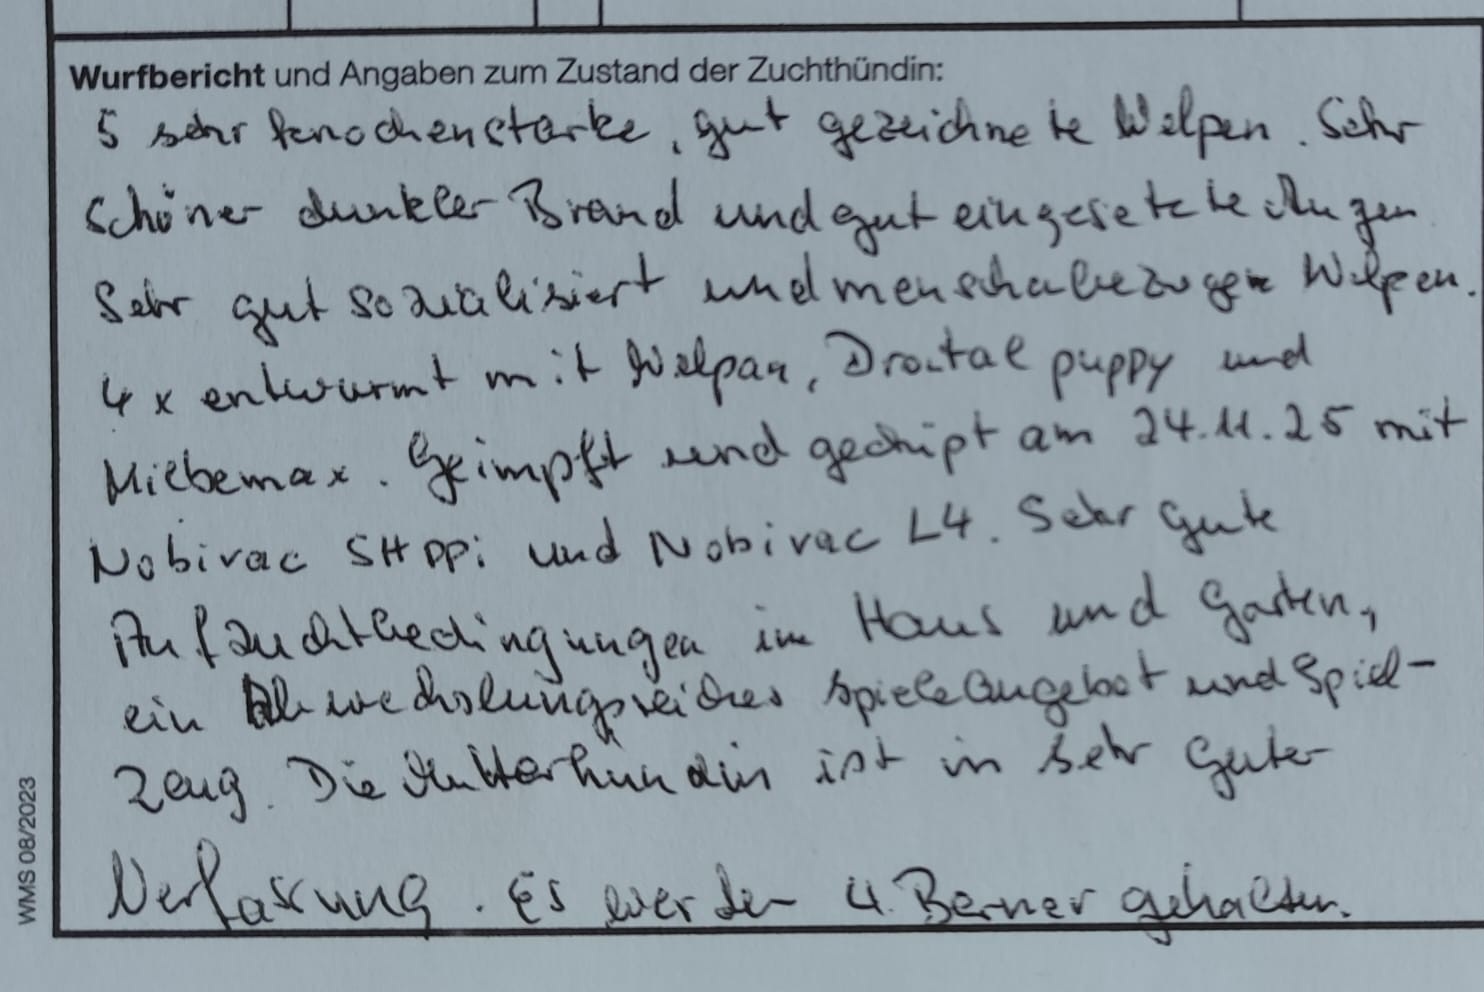 Wurfbericht und Angaben zum Zustand der Zuchthündin:
5 sehr knochenstarke, gut gezeichnete Welpen. Sehr
schöner dunkler Brand und gut eingesetzte Augen
Sehr gut sozialisiert und menschabezogen Welpen.
4 x entwurmt mit Welpan, Drontal puppy und
Milbemax. Geimpft und gechipt am 24.11.25 mit
Nobivac SHPPi und Nobivac L4. Sehr gute
Aufzuchtbedingungen im Haus und Garten,
ein Abwechslungsreiches Spieleangebot und Spiel-
zeug. Die Mutterhündin ist in sehr guter
Verfassung. Es werden 4. Berner gehalten.
WMS 08/2023